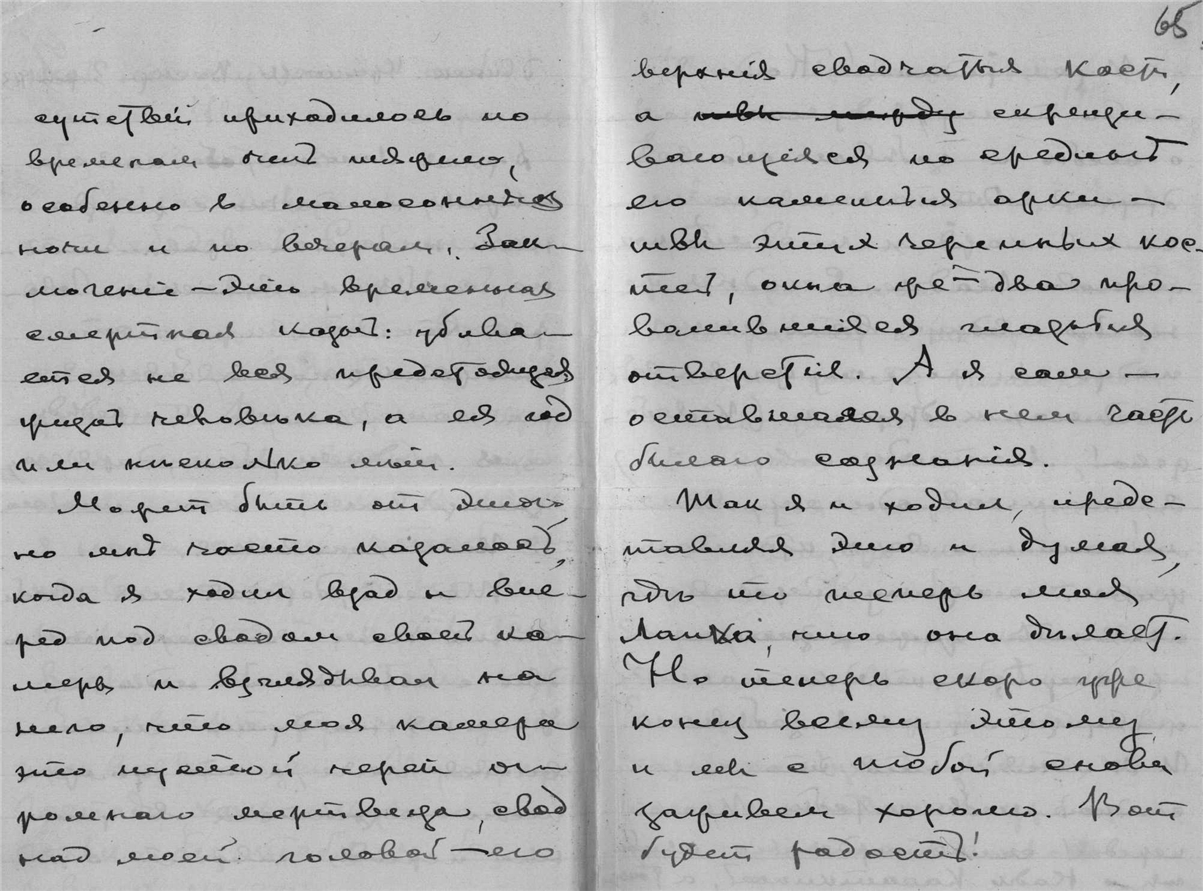 сутствiй приходилось по
временам очень тяжело,
особенно в малосонныя
ночи и по вечерам. Зак-
люченiе – это временная
смертная казнь: убива-
ется не вся предстоящая
жизнь человѣка, а ея год
или нѣсколько лѣт.
Может быть от этого-
но мнѣ часто казалось,
когда я ходил взад и впе-
ред под сводом своей ка-
меры и взглядывал на
него, что моя камера
это пустой череп ог-
ромнаго мертвеца, свод
над моей головой – его
65
верхнiя сводчатыя кости,
а скрещи-
вающiяся по срединѣ
его каменныя арки –
швы этих черепных кос-
тей, окна же два про-
валившiяся глазныя
отверстiя. А я сам –
оставшаяся в нем часть
былаго сознанiя.
Так я и ходил, предс-
тавляя это и думая,
гдѣ то теперь моя
что она дѣлает.
Но теперь скоро уже
конец всему этому,
и мы с тобой снова
заживем хорошо. Вот
будет радость!